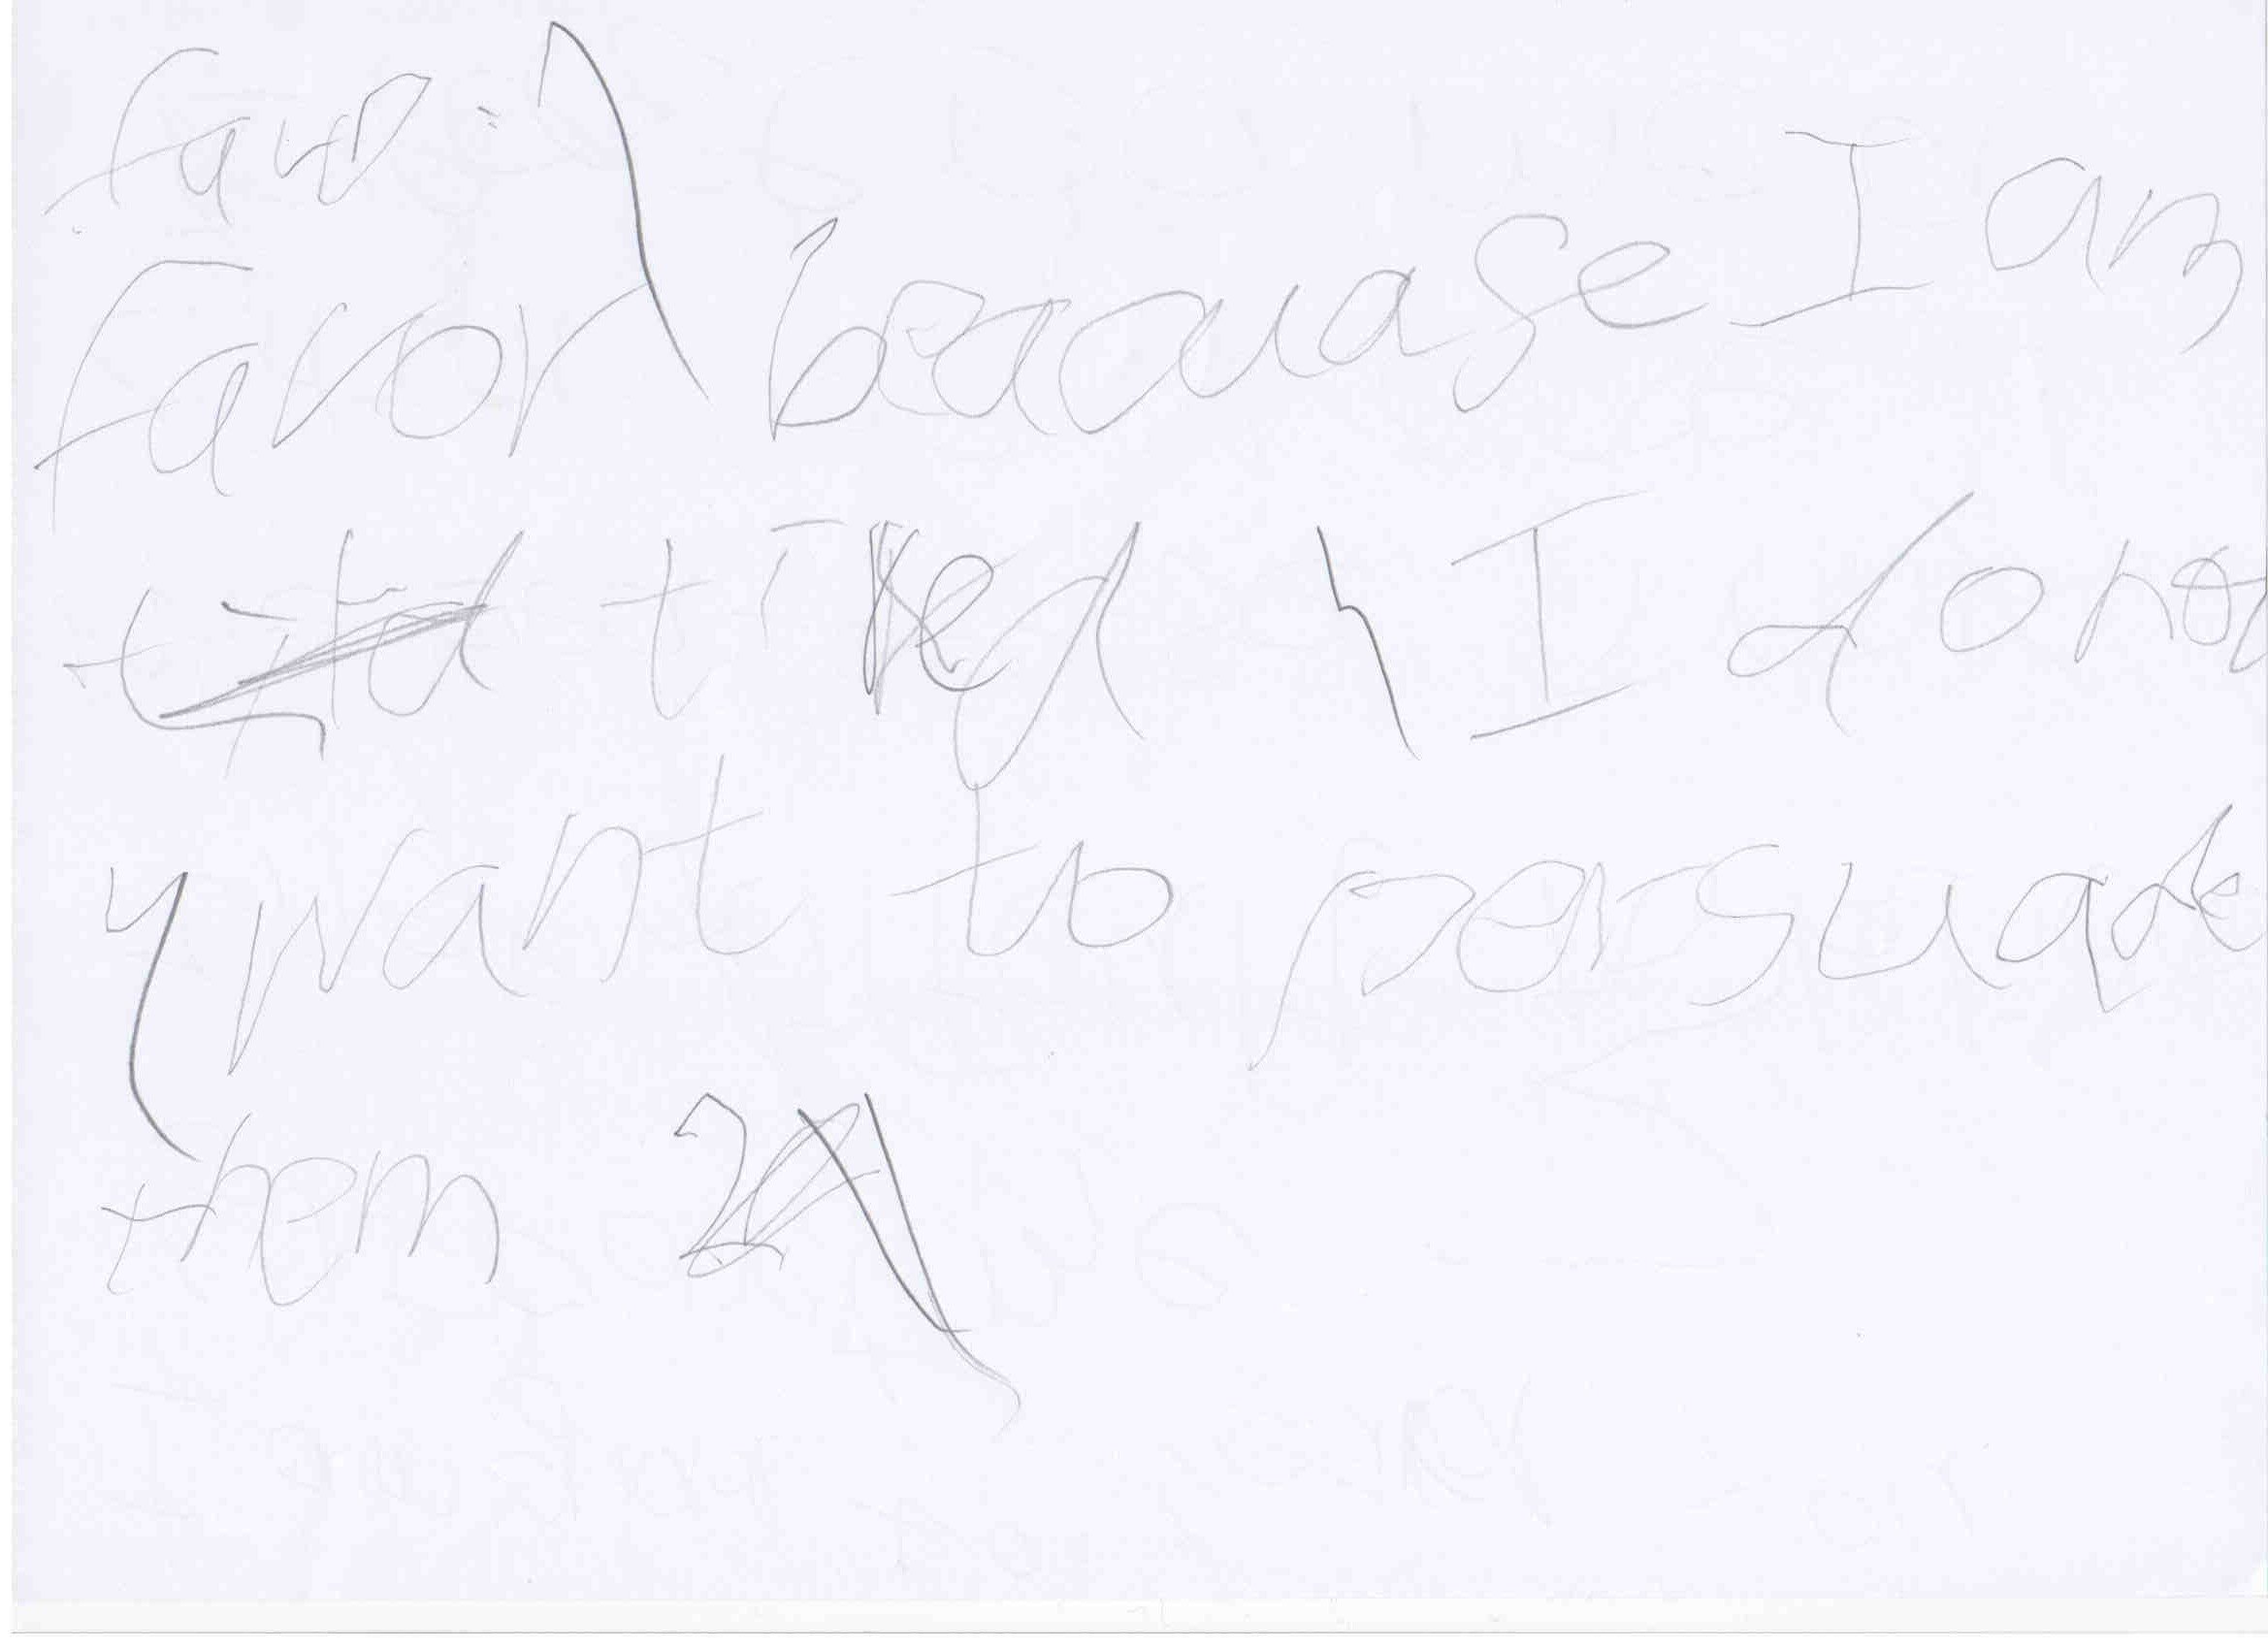 favo
favor becauase I am
tired I do not
want to persuade
them